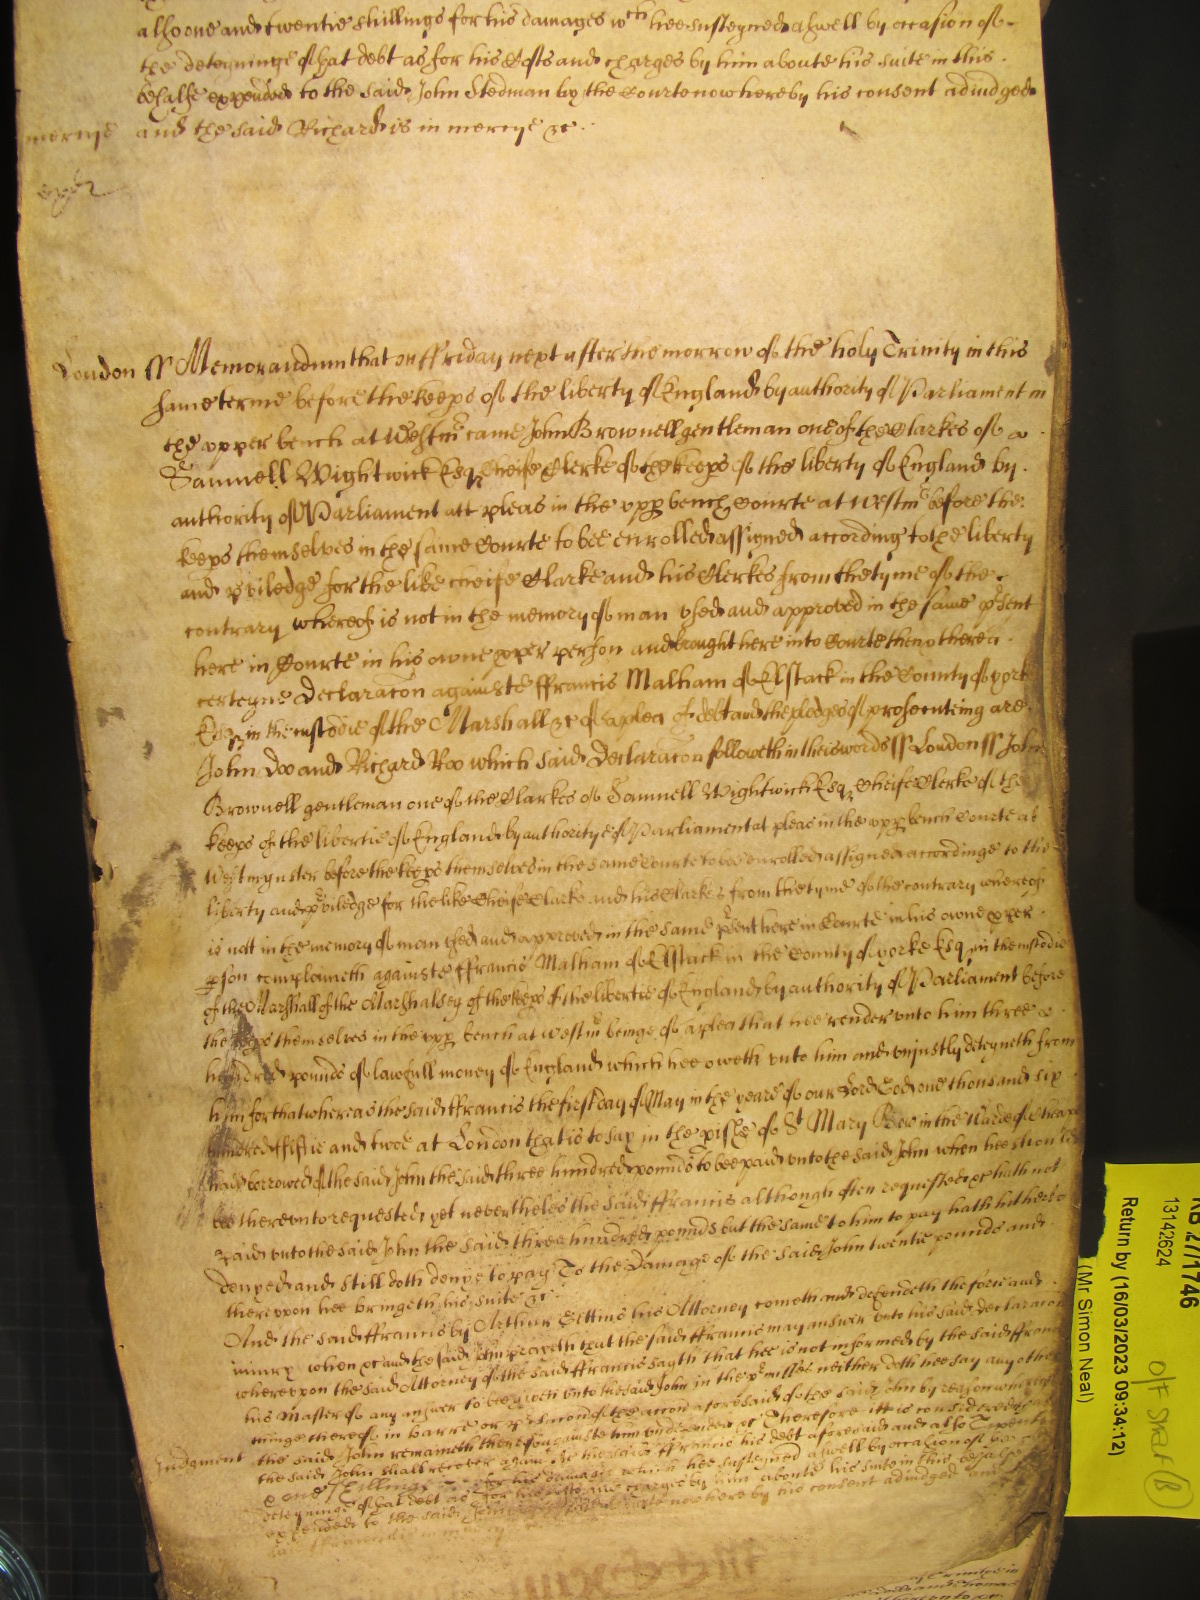 also one and twentie shillings for his damages wch hee susteyned aswell by occasion of
the deteyninge of that debt as for his Costs and charges by him aboute his suite in this
behalfe expended to the said John Stedman by the Courte now here by his consent adiudged
mercye and the said Richard is in mercye &c
London ss Memorandum that on ffriday next after the morrow of the holy Trinity in this
same terme before the keeps of the liberty of England by authority of Parliament in
the vpper bench at Westmr came John Brownell gentleman one of the Clarkes of
Samuell Wightwick Esqr Cheife Clerke of the keeps of the liberty of England by
authority of Parliament att pleas in the vpp bench Courte at Westmr before the
keeps themselves in the same Courte to bee enrolled assigned according to the liberty
and pviledge for the like cheife Clarke and his Clerkes from the tyme of the
contrary whereof is not in the memory of man vsed and approved in the same psent
here in Courte in his owne pper person and brought here into Courte then there a
certeyne Declaracon against ffrancis Malham of Elstack in the County of york
Esqr in the custodie of the Marshall &c of a plea of debt and the pledges of prosecuteing are
John Doo and Richard Roo which said Declaracon followeth in theis words ss London ss John
Brownell gentleman one of the Clarkes of Samuell Wightwick Esqr Cheife Clerke of the
keeps of the libertie of England by authoritye of Parliament at pleas in the vpp bench Courte at
Westmynster before the keeps themselves in the same Courte to bee enrolled assigned accordinge to the
liberty and pviledge for the like Cheife Clarke and his Clarkes from the tyme of the contrary whereof
is not in the memory of man vsed and approved in the same psent here in Courte in his owne pper
pson complaineth againste ffrancis Malham of Elstack in the County of yorke Esqr in the custodie
of the Marshall of the Marshalsey of the keeps of the libertie of England by authority of Parliament before
the keeps themselves in the vpp bench at Westmr beinge of a plea that hee render vnto him three
hundred pounds of lawfull money of England which hee oweth vnto him and vniustly deteyneth from
him for that whereas the said ffrancis the first day of May in the yeare of our Lord God one thousand six
hundred ffiftie and twoe at London that is to say in the pishe of St Mary Bow in the Warde of Cheape
had borrowed of the said John the said three hundred pounds to bee paid vnto the said John when hee should
bee therevnto requested yet neverthelesse the said ffrancis although often requested &c hath not
paid vnto the said John the said three hundred pounds but the same to him to pay hath hitherto
denyed and still doth denye to pay To the Damage of the said John twentie pounds and
therevpon hee bringeth his suite &c
And the said ffrancis by Arthur his Attorney cometh and defendeth the force and
iniury when &c and the said John prayeth that the said ffrancis may answer vnto his said declaracon
wherevpon the said Attorney of the said ffrancis sayth that hee is not informed by the said ffrancis
his Master of any answer to bee given vnto the said John in the pmisses neither doth hee say any other
thinge thereof in barre or of the accon aforesaid of the said John by reason whereof
Judgment the said John remaineth thereof againste him vndefended &c Therefore itt is considered that
the said John shall recover against the said ffrancis his debt aforesaid and also
one shillings for his damages which hee susteyned aswell by occasion of the
deteyninge of that debt as for his costs and charges by him aboute his suite in this behalfe
expended to the said John now here by his consent adiudged and
RB 27/1746
13142624
Return by (16/03/2023 09:34:12)
(Mr Simon Neal)
Off Strat B